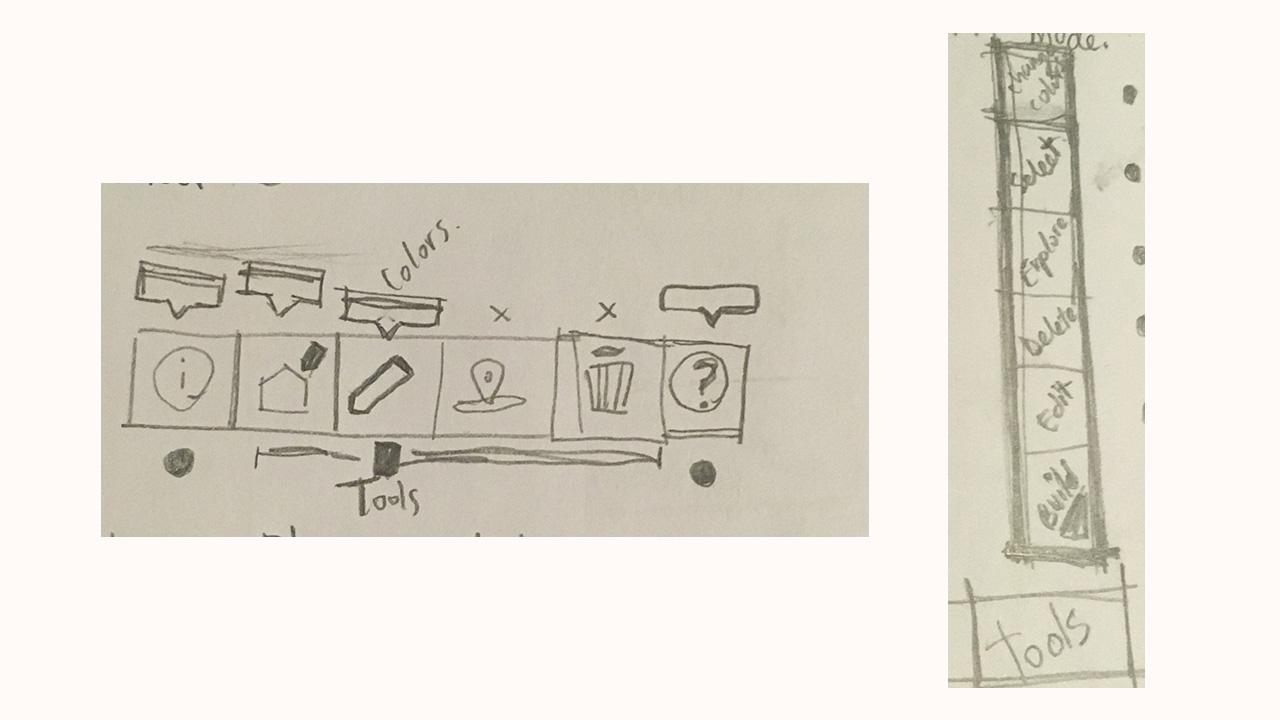 Colors.
x x
i
?
Tools
Mode.
Change
Colors
Select
Explore
Delete
Edit
Build
Tools